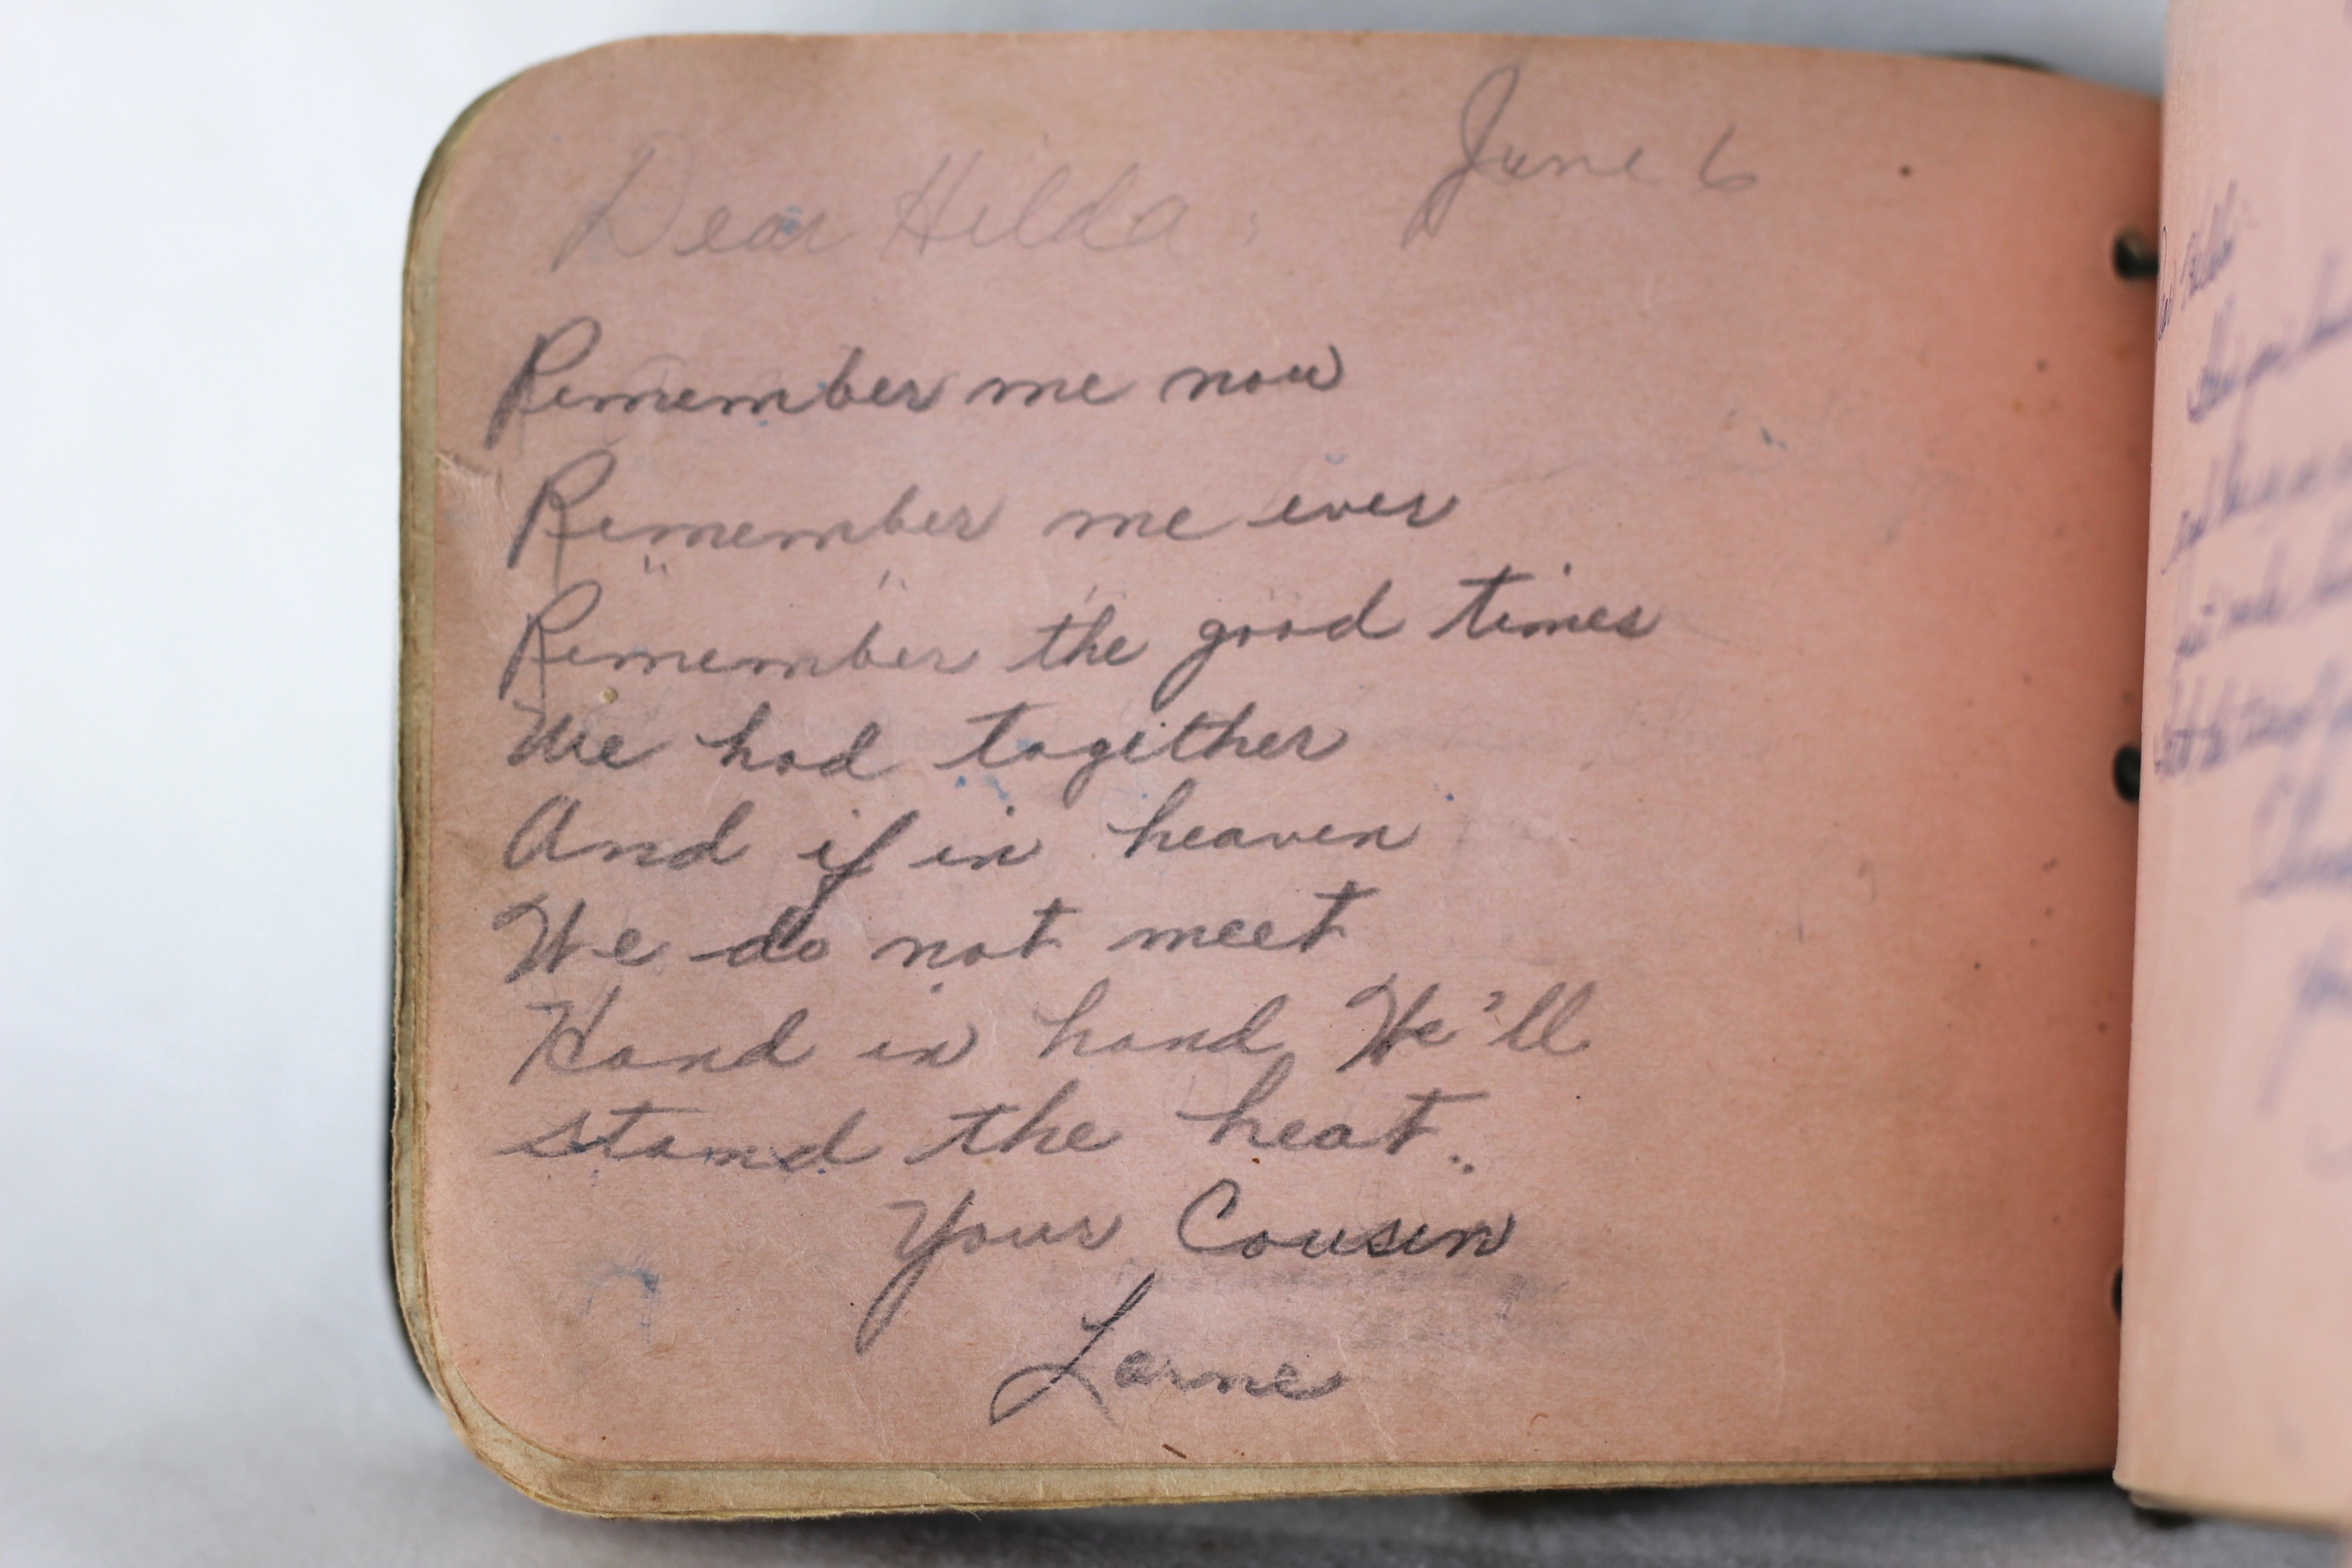 June 6
Dear Hilda:
Remember me now
Remember me ever
Remember the good times
We had together
And if in heaven
We do not meet
Hand in hand We'll
stand the heat..
Your Cousin
Lorne